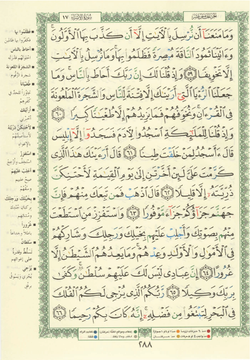 وَمَا مَنَعَنَا أَن نُّرْسِلَ بِالْآيَاتِ إِلَّا أَن كَذَّبَ بِهَا الْأَوَّلُونَ
وَآتَيْنَا ثَمُودَ النَّاقَةَ مُبْصِرَةً فَظَلَمُوا بِهَا وَمَا نُرْسِلُ بِالْآيَاتِ
إِلَّا تَخْوِيفًا ٥٩ وَإِذْ قُلْنَا لَكَ إِنَّ رَبَّكَ أَحَاطَ بِالنَّاسِ وَمَا
جَعَلْنَا الرُّؤْيَا الَّتِي أَرَيْنَاكَ إِلَّا فِتْنَةً لِّلنَّاسِ وَالشَّجَرَةَ الْمَلْعُونَةَ
فِي الْقُرْآنِ وَنُخَوِّفُهُمْ فَمَا يَزِيدُهُمْ إِلَّا طُغْيَانًا كَبِيرًا ٦٠
وَإِذْ قُلْنَا لِلْمَلَائِكَةِ اسْجُدُوا لِآدَمَ فَسَجَدُوا إِلَّا إِبْلِيسَ
قَالَ أَأَسْجُدُ لِمَنْ خَلَقْتَ طِينًا ٦١ قَالَ أَرَأَيْتَكَ هَٰذَا الَّذِي
كَرَّمْتَ عَلَيَّ لَئِنْ أَخَّرْتَنِ إِلَىٰ يَوْمِ الْقِيَامَةِ لَأَحْتَنِكَنَّ
ذُرِّيَّتَهُ إِلَّا قَلِيلًا ٦٢ قَالَ اذْهَبْ فَمَن تَبِعَكَ مِنْهُمْ فَإِنَّ
جَهَنَّمَ جَزَاؤُكُمْ جَزَاءً مَّوْفُورًا ٦٣ وَاسْتَفْزِزْ مَنِ اسْتَطَعْتَ
مِنْهُم بِصَوْتِكَ وَأَجْلِبْ عَلَيْهِم بِخَيْلِكَ وَرَجِلِكَ وَشَارِكْهُمْ
فِي الْأَمْوَالِ وَالْأَوْلَادِ وَعِدْهُمْ وَمَا يَعِدُهُمُ الشَّيْطَانُ إِلَّا
غُرُورًا ٦٤ إِنَّ عِبَادِي لَيْسَ لَكَ عَلَيْهِمْ سُلْطَانٌ وَكَفَىٰ
بِرَبِّكَ وَكِيلًا ٦٥ رَّبُّكُمُ الَّذِي يُزْجِي لَكُمُ الْفُلْكَ
فِي الْبَحْرِ لِتَبْتَغُوا مِن فَضْلِهِ إِنَّهُ كَانَ بِكُمْ رَحِيمًا ٦٦
٢٨٨